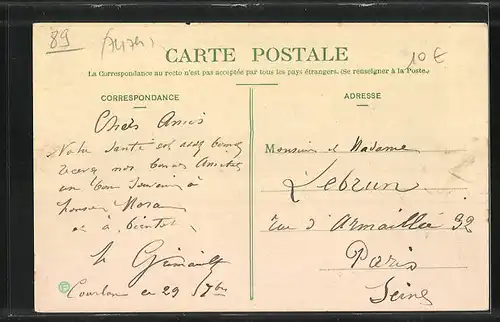 89
10 €
CARTE POSTALE
La Correspondance au recto n'est pas acceptée par tous les pays étrangers. (Se renseigner à la Poste.)
CORRESPONDANCE
Chers Amis
Notre santé est assez bonne
recevez nos bonnes Amitiés
un bon souvenir à
et à bientôt
en 29 7bre
ADRESSE
Monsieur et Madame
Lebrun
rue d'Armaillé 32
Paris
Seine